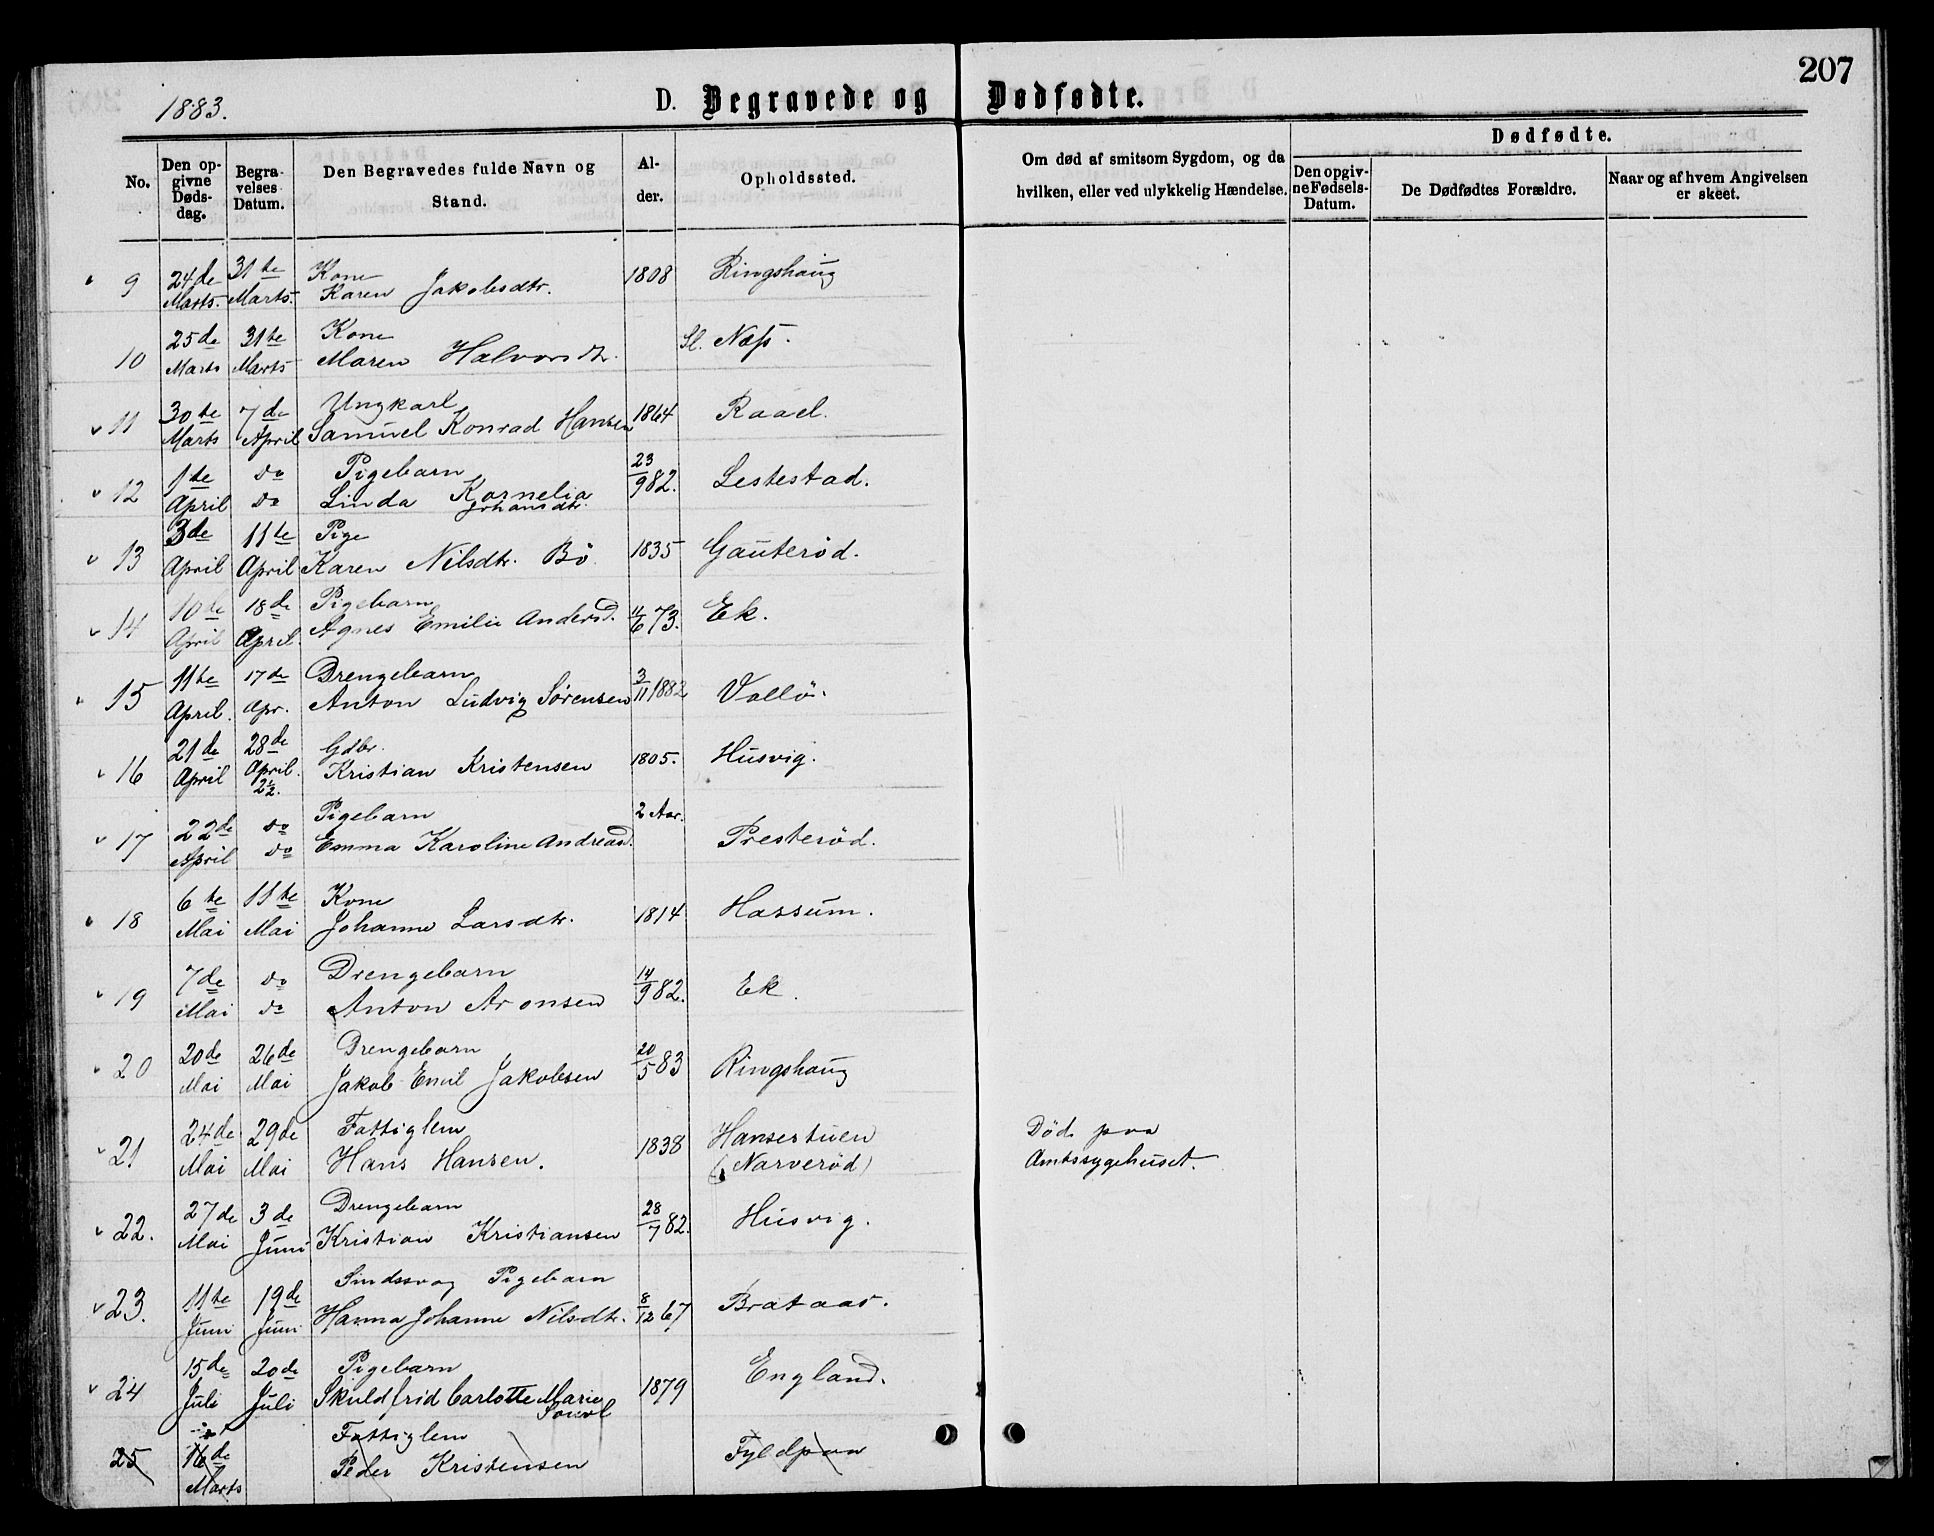 207
1883. D. Begravede og Dødfødte.
No.
Den opgivne Dødsdag.
Begravelses Datum.
Den Begravedes fulde Navn og Stand.
Alder.
Opholdssted.
Om død af smitsom Sygdom, og da hvilken, eller ved ulykkelig Hændelse.
Dødfødte.
Den opgivne Fødsels-Datum.
De Dødfødtes Forældre.
Naar og af hvem Angivelsen er skeet.
9 24de Marts. 31te Marts. Kone Karen Jakobsdtr. 1808 Ringshaug
10 25de Marts 31te Marts Kone Maren Halvorsdtr. Sl. Næss.
11 30te Marts 7de April Ungkarl Samuel Konrad Hansen 1864 Raael.
12 1te April do do Pigebarn Linda Kornelia Johansdtr. 23/9 82. Lestestad.
13 3de April 11te April Pige Karen Nilsdtr. Bö 1835 Gauteröd.
14 10de April 18de April. Pigebarn Agnes Emilie Andersd. 11/6 73. Ek.
15 11te April. 17de Apr. Drengebarn Anton Ludvig Sörensen 3/11 1882 Vallö.
16 21de April 28de April. Gdbr. Kristian Kristensen 1805. Husvig.
17 22de April do do Pigebarn Emma Karoline Andreasd. 2 Aar. Presteröd.
18 6te Mai 11te Mai Kone Johanne Larsdtr. 1814 Hassum.
19 7de Mai do do Drengebarn Anton Aronsen 14/9 82. Ek.
20 20de Mai 26de Mai Drengebarn Jakob Emil Jakobsen 20/5 83 Ringshaug
21 24de Mai 29de Mai Fattiglem Hans Hansen. 1838 Hansestuen (Narveröd) Död paa Amtssygehuset.
22. 27de Mai 3de Juni Drengebarn Kristian Kristiansen 28/7 82. Husvig.
23. 11te Juni 19de Juni Sindssvag Pigebarn Hanna Johanne Nilsdtr. 8/12 67 Brataas.
24 15de Juli 20de Juli Pigebarn Skuldfrid Carlotte Marie 1879 England.
25 16de Marts Fattiglem Peder Kristensen Fyldpaa